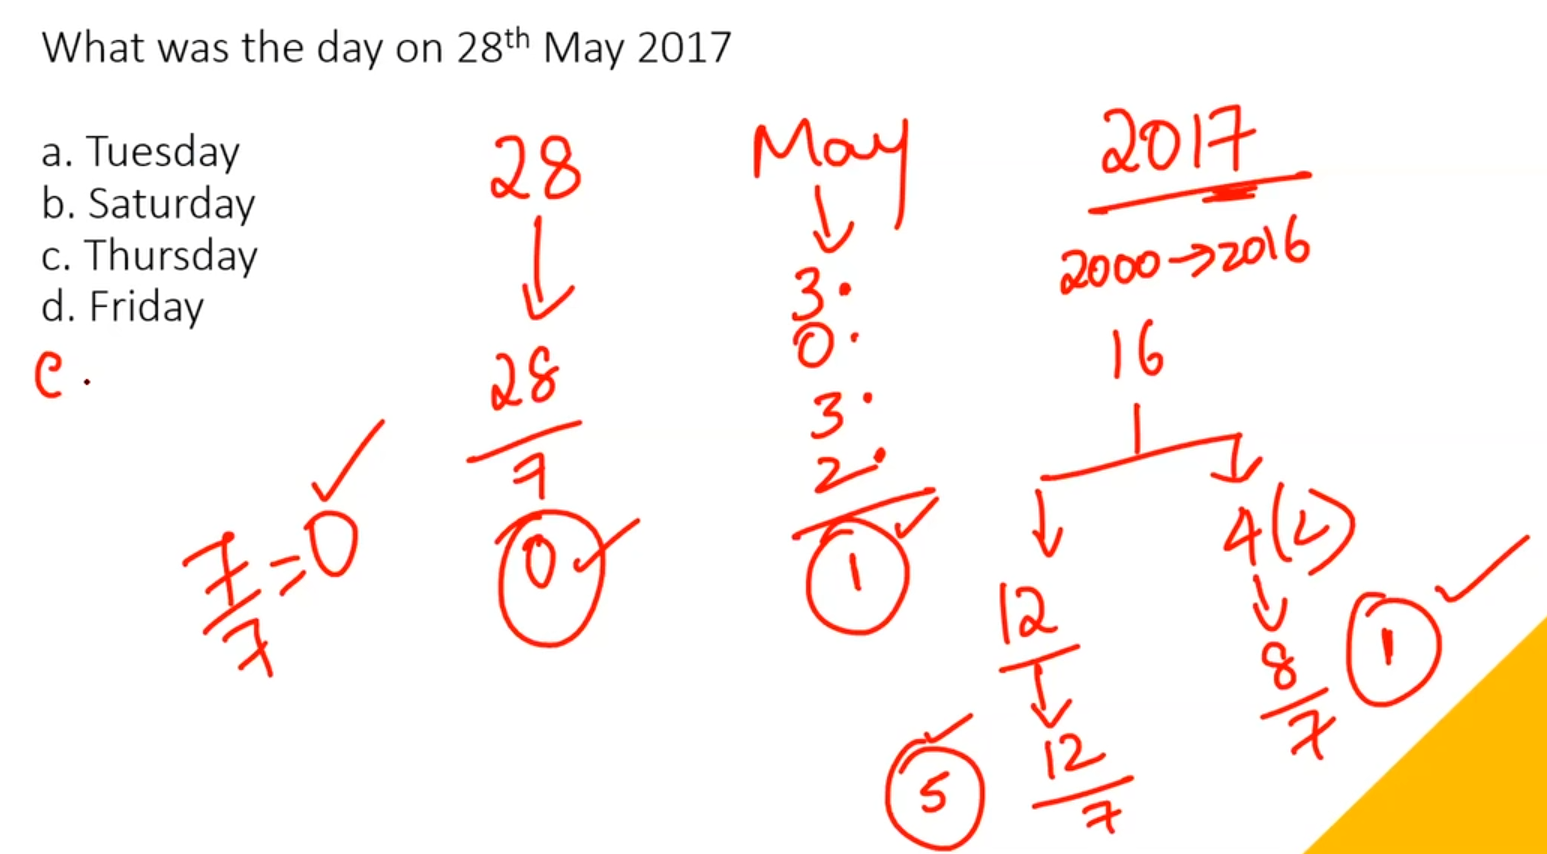 What was the day on 28th May 2017
a. Tuesday
b. Saturday
c. Thursday
d. Friday
e.
28
28
7
0
7
7
=0
May
3
0
3
2
1
2017
2000→2016
16
12
12
7
5
4(L)
8
7
1